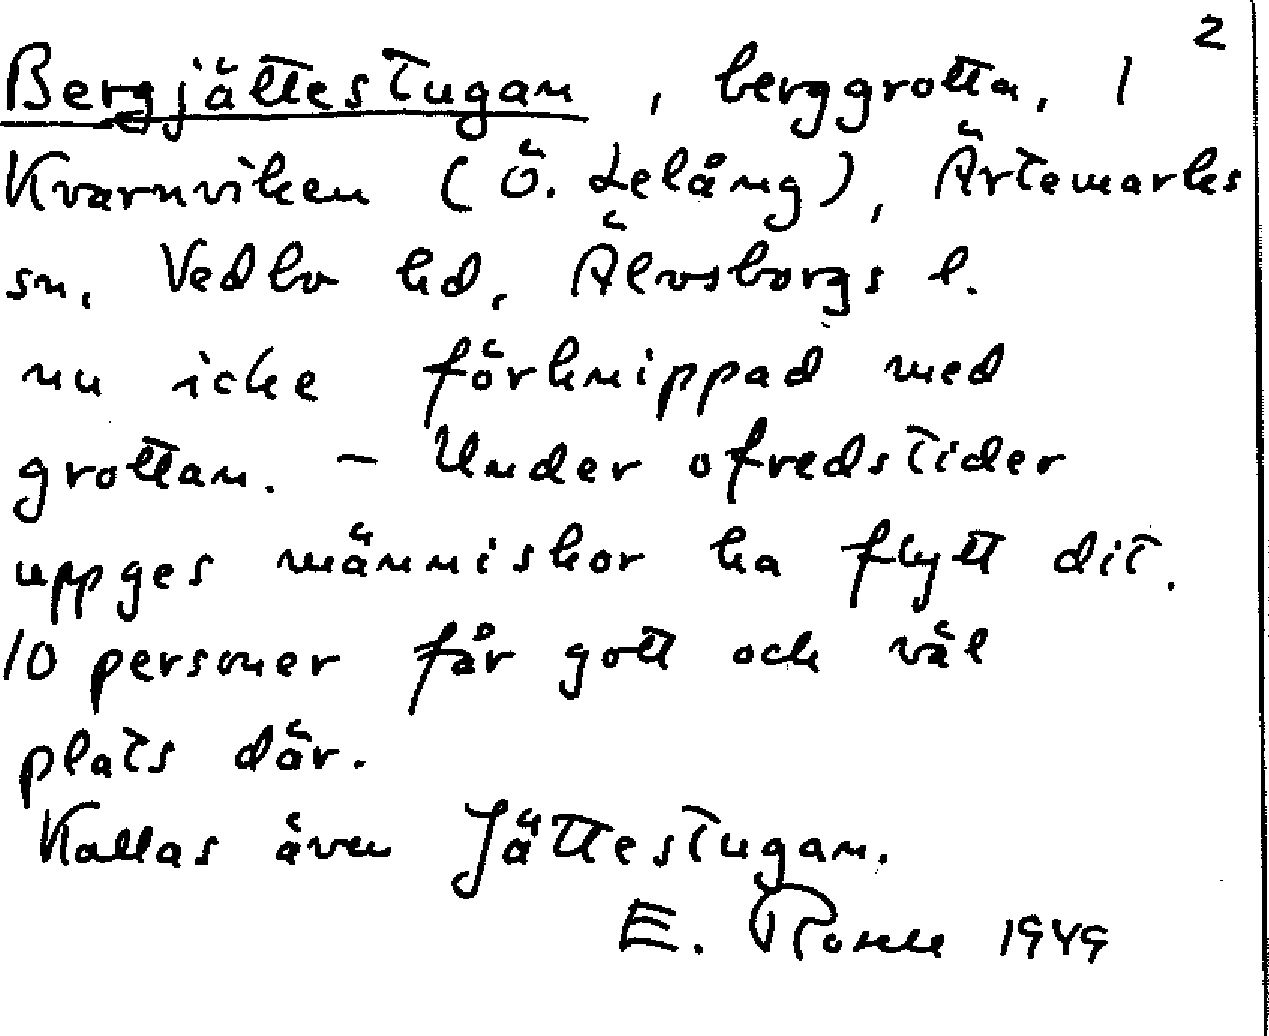 2
Bergjättestugan, berggrotta, 1
Kvarnviken (Ö. Lelång), Ärtemarks
sn, Vedbo hd, Älvsborgs l.
nu icke förknippad med
grottan. – Under ofredstider
uppges människor ha flytt dit.
10 personer får gott och väl
plats där.
Kallas även Jättestugan.
E. 1949